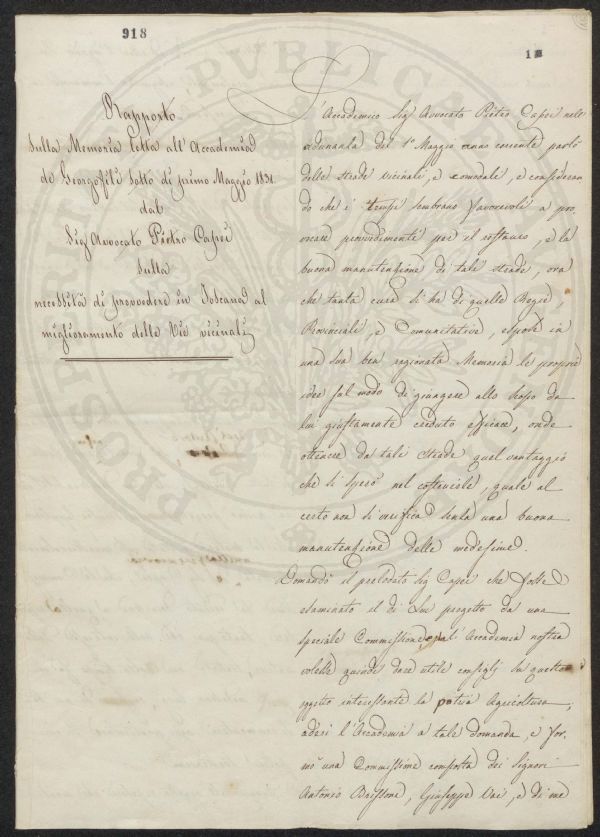 918
1
Rapporto
Sulla Memoria letta all'Accademia
de Georgofili sotto di primo Maggio 1831.
dal
Sig Avvocato Pietro Capei
sulla
necessità di provvedere in Toscana al
miglioramento delle Vie vicinali
L'Accademico Sig Avvocato Pietro Capei nell'
adunanza del 1° Maggio anno corrente, parlò
delle strade vicinali, e comodali, e consideran
do che i tempi sembrano favorevoli a pro,
vocare provvedimenti per il restauro, e la
buona manutenzione di tali strade, ora
che tanta cura si ha di quelle Regie,
Provinciali, e Comunitative, espose in
una sua ben ragionata Memoria le proprie
idee sul modo di giungere allo scopo da
lui giustamente creduto efficace, onde
ottenere da tali strade quel vantaggio
che si sperò nel costruirle, quale al
certo non si verifica senza una buona
manutenzione delle medesime.
Domandò il prelodato Sig Capei che fosse
esaminato il di Lui progetto da una
speciale Commissione, l'Accademia nostra
volesse quindi dare utile consigli su questo
oggetto interessante la patria Agricoltura;
aderì l'Accademia a tale domanda, e for,
mò una Commissione composta dei Signori
Antonio Giuseppe e di me